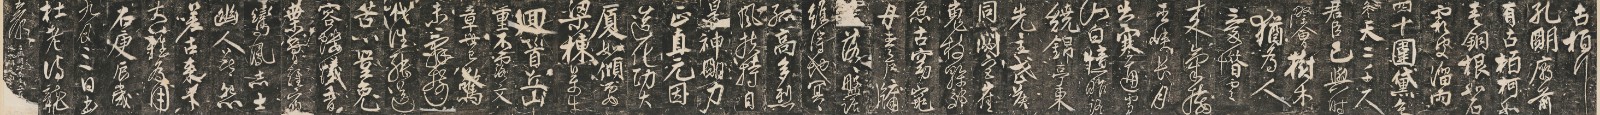 古柏行
孔明廟前
有古柏柯如
青銅根如石
霜皮溜雨
四十圍黛色
參天二千尺
君臣已與時
際會樹木
猶為人
愛惜雲
來氣接
巫峽長月
出寒通雪
山白憶昨路
繞錦亭東
先主武侯
同閟宮崔
嵬枝幹郊
原古窈窕
丹青戶牖
落落盤踞
雖得地冥
孤高多烈
風扶持自
是神明力
正直元因
造化功大
廈如傾要
梁棟萬牛
迴首丘山
重不露文
章世已驚
未辭剪
伐誰能送
苦心豈免
容螻蟻香
葉終經宿
鸞鳳志士
幽人莫怨
嗟古來材
大難為用
右庚辰歲
九月三日書
杜老詩